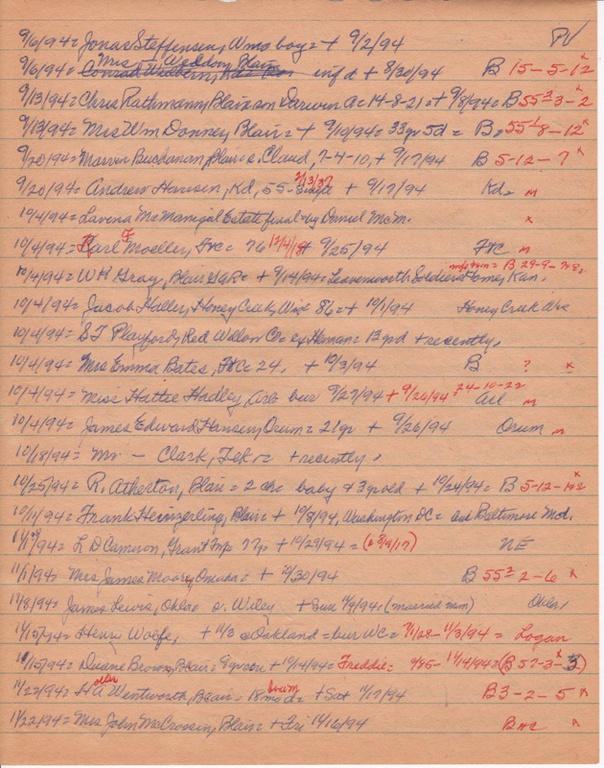 9/6/94 = Jonas Steffensen, 10 mo boy = + 9/2/94 PV
9/6/94 = Mrs Weddon, Blair inf d + 8/30/94 B 15-5-12 x
9/13/94 = Chris Rathmann, Blair son Darwin a = 14-8-21 = + 9/8/94 = B 55²3-2 x
9/13/94 = Mrs Wm Donney Blair = + 9/10/94 = 33 yr 5d = B = 55¹8-12 x
9/20/94 = Marvin Buchanan, Blair s. Claud, 7-4-10, + 9/17/94 B 5-12-7 x
9/20/94 = Andrew Hansen, Kd, 55- 3/13/37 + 9/17/94 Kd = m
10/4/94 = Lavena McManigal Estate final by Daniel McM. x
10/4/94 = Karl F Moeller, FtC = 76 12/4/18 + 9/25/94 FtC m
10/4/94 = WH Gray, Blair GAR = + 9/14/94 = Leavenworth Soldiers Home, Kan. = B 29-9-
10/4/94 = Jacob Haller, Honey Creek, Wis 86 = + 10/1/94 Honey Creek Wis
10/4/94 = ST Playford, Red Willow Co = ex Herman = 13 yrd + recently,
10/4/94 = Mrs Emma Bates, FtC = 24, + 10/3/94 B ? x
10/4/94 = Miss Hattie Hadley, Arl = bur 9/27/94 + 9/26/94 24-10-22 Arl m
10/4/94 = James Edward Hansen, Orum = 21 yr + 9/26/94 Orum m
10/18/94 = Mr - Clark, Tek = + recently,
10/25/94 = R. Atherton, Blair = 2 chc baby & 3 yr old + 10/24/94 = B 5-12-1&2 x
10/11/94 = Frank Heinzerling, Blair = + 10/8/94, Washington DC = bur Baltimore Md.
11/1/94 = L D Cameron, Grant Twp 77 yr + 10/29/94 = (b 8/9/17) NE
11/1/94 = Mrs James Moore, Omaha = + 10/30/94 B 55² 2-6 x
11/8/94 = James Lewis, Okla = s. Wiley + Sun 11/4/94. (married man)
11/15/94 = Henry Wolfe, + 11/3 = Oakland = bur WC = 7/1/28 - 11/3/94 = Logan
11/15/94 = Duane Brown, Blair = 9 yr son + 11/14/94 = Freddie = 9/85 - 11/14/94 = (B 57-3-3) x
11/22/94 = H A Wentworth, Blair = 18 mo d = + Sat 11/17/94 B 3-2-5 x
11/22/94 = Mrs John McCrossin, Blair = + Fri 11/16/94 B nc x